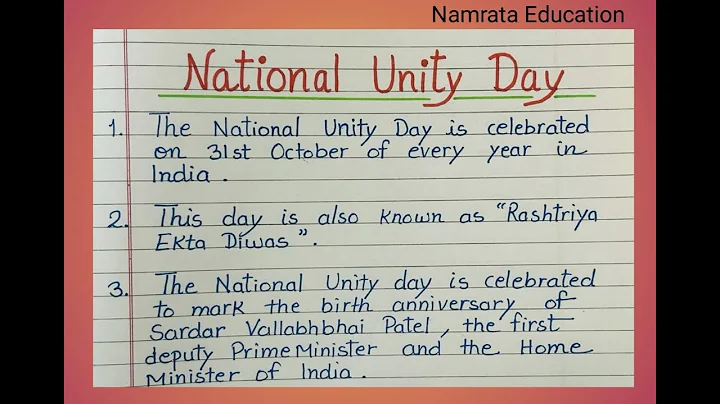 Namrata Education
National Unity Day
1. The National Unity Day is celebrated
on 31st October of every year in
India.
2. This day is also known as "Rashtriya
Ekta Diwas".
3. The National Unity day is celebrated
to mark the birth anniversary of
Sardar Vallabhbhai Patel, the first
deputy Prime Minister and the Home
Minister of India.